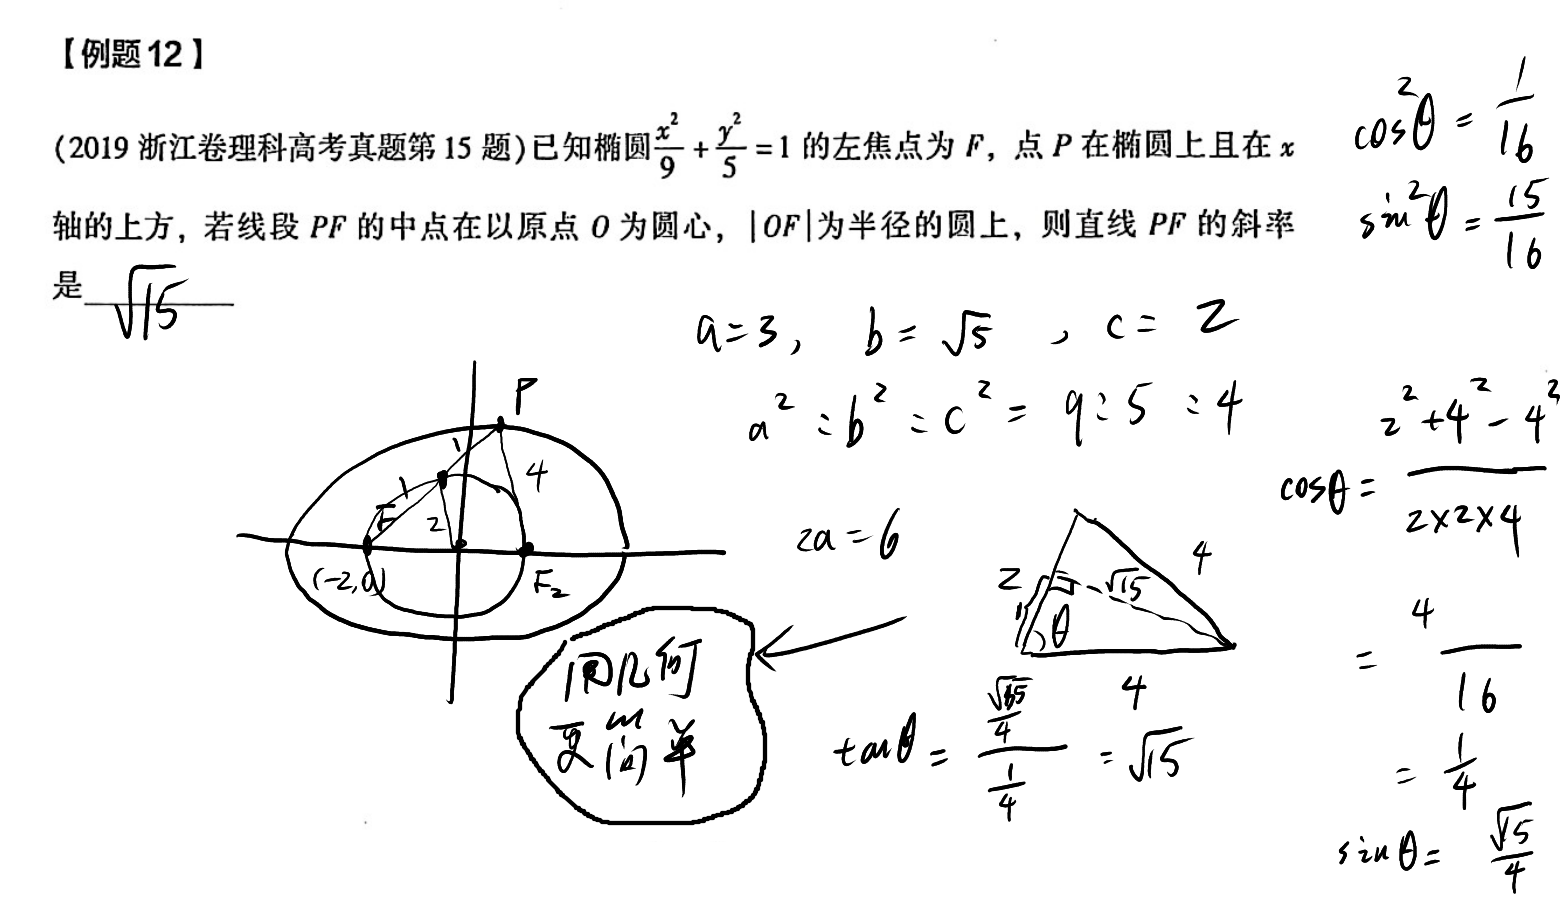 【例题12】
(2019 浙江卷理科高考真题第 15 题)已知椭圆x²/9+y²/5=1 的左焦点为 F，点 P 在椭圆上且在 x
轴的上方，若线段 PF 的中点在以原点 O 为圆心，|OF|为半径的圆上，则直线 PF 的斜率
是 √15
cos²θ = 1/16
sin²θ = 15/16
a=3, b=√5, c=2
a²:b²:c²=9:5:4
2a=6
P
1
1
4
F
2
(-2,0)
F₂
用几何
更简单
2
1
√15
4
θ
4
tanθ = (√15/4)/(1/4) = √15
cosθ = (2²+4²-4²)/(2×2×4)
= 4/16
= 1/4
sinθ = √15/4